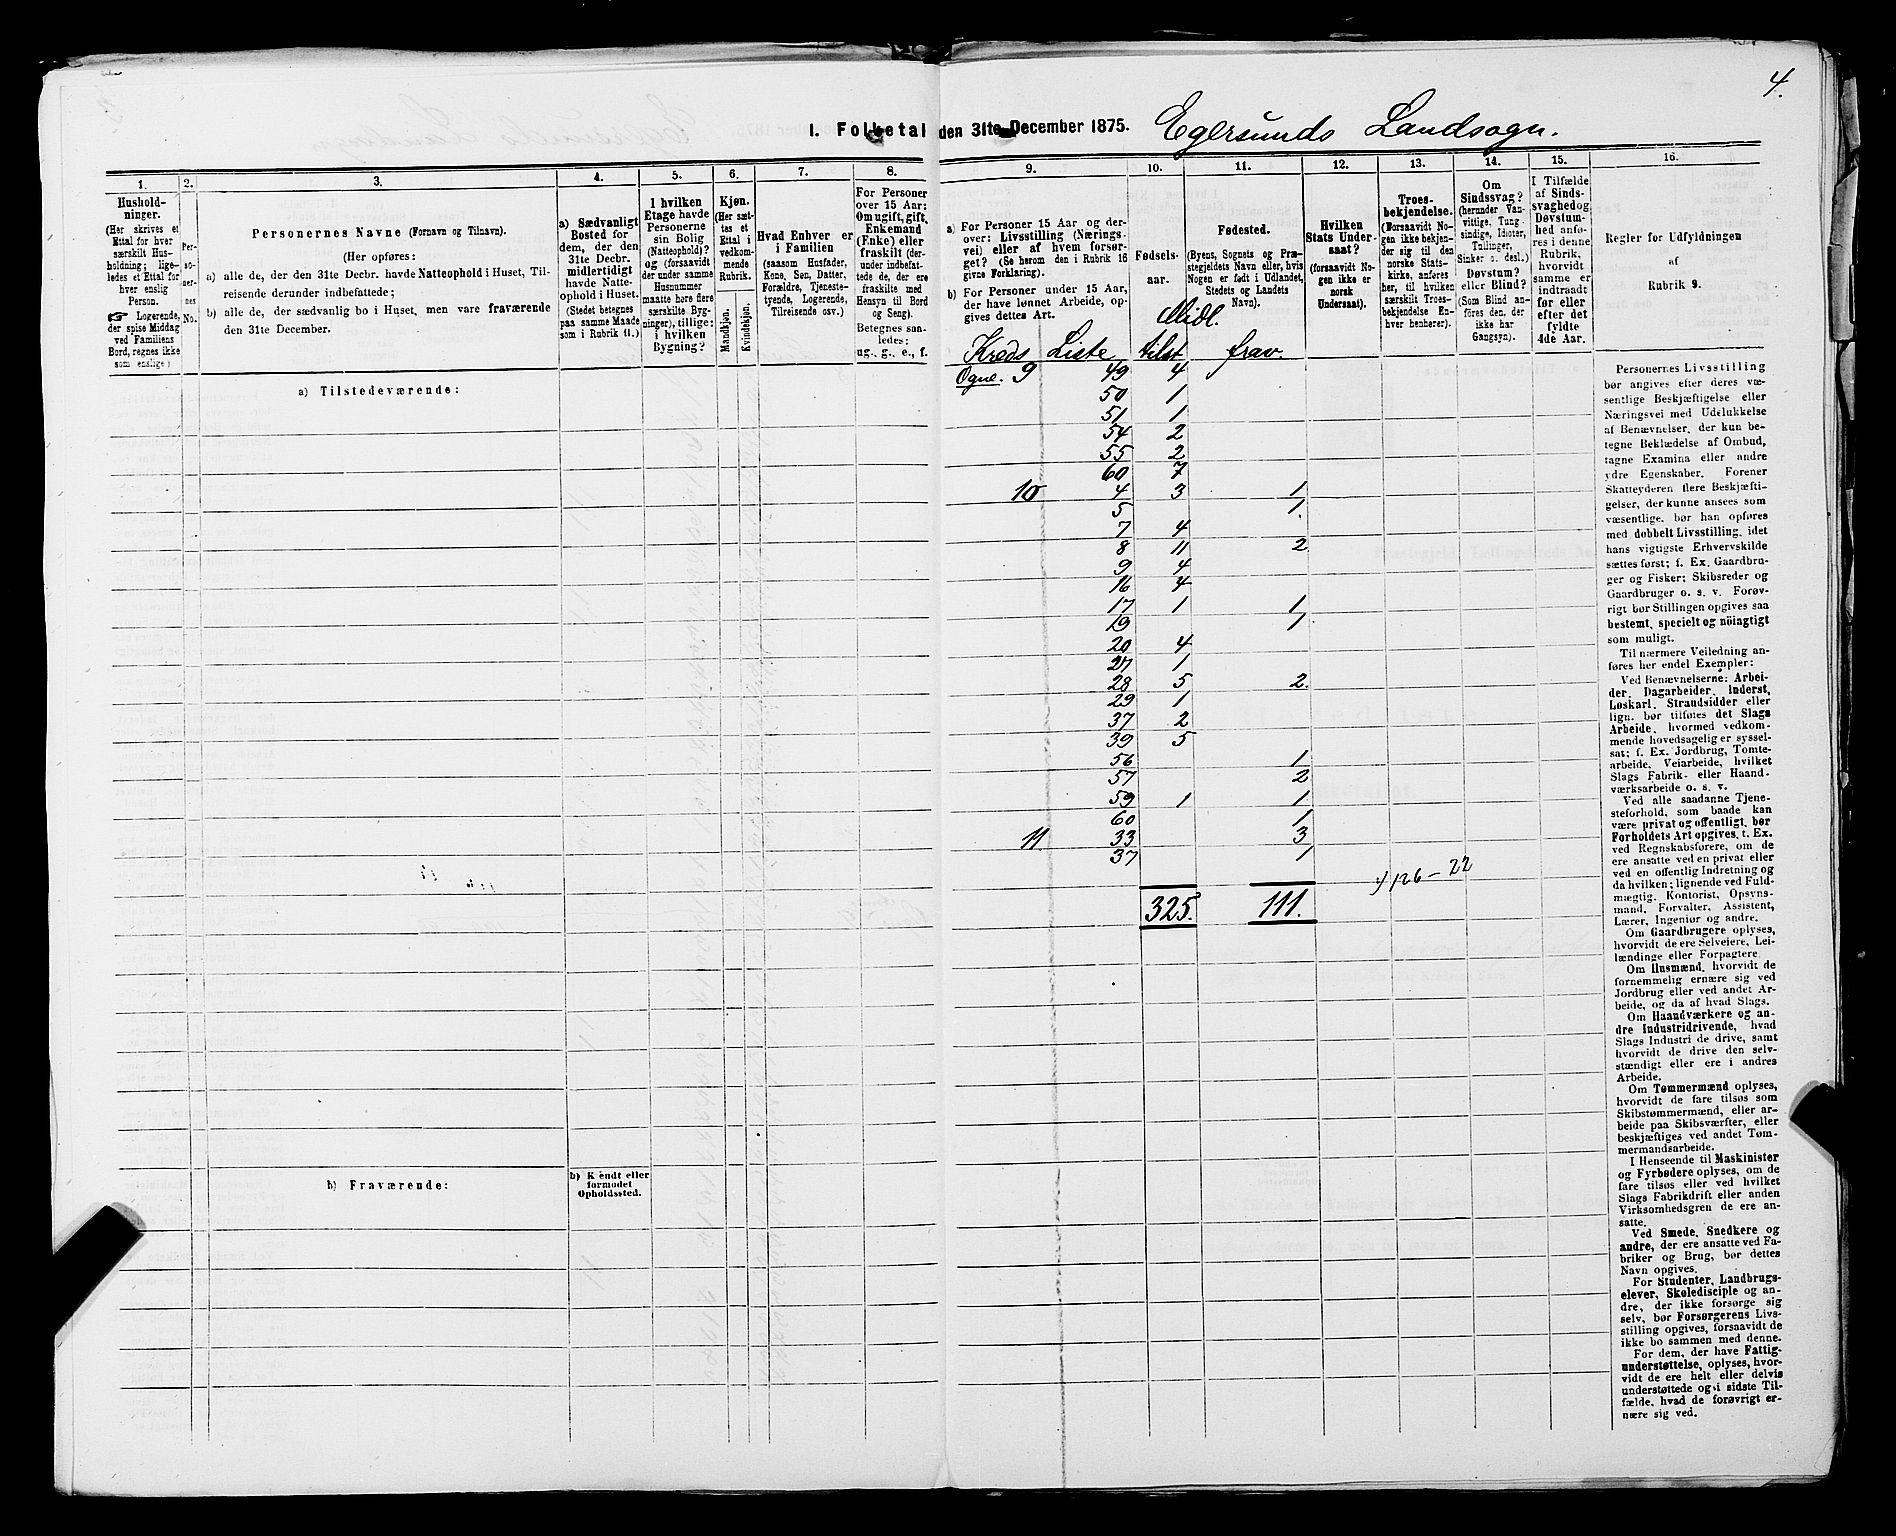 4.
I. Folketal den 31te December 1875. Egersunds Landsogn.
1.
Hushold-
ninger.
(Her skrives et
Ettal for hver
særskilt Hus-
holdning; lige-
ledes et Ettal for
hver enslig
Person.
☞ Logerende,
der spise Middag
ved Familiens
Bord, regnes ikke
som enslige)
2.
Per-
so-
ner-
nes
No.
3.
Personernes Navne (Fornavn og Tilnavn).
(Her opføres:
a) alle de, der den 31te Decbr. havde Natteophold i Huset, Til-
reisende derunder indbefattede;
b) alle de, der sædvanlig bo i Huset, men vare fraværende
den 31te December.
4.
a) Sædvanligt
Bosted for
dem, der den
31te Decbr.
midlertidigt
havde Natte-
ophold i Huset.
(Stedet betegnes
paa samme Maade
som i Rubrik 11.)
5.
I hvilken
Etage havde
Personerne
sin Bolig
(Natteophold)?
og (forsaavidt
der under samme
Husnummer
maatte høre flere
særskilte Byg-
ninger), tillige:
i hvilken
Bygning?
6.
Kjøn.
(Her sæt-
tes et
Ettal i
vedkom-
mende
Rubrik.
Mandkjøn.
Kvindekjøn.
7.
Hvad Enhver er
i Familien
(saasom Husfader,
Kone, Søn, Datter,
Forældre, Tjeneste-
tyende, Logerende,
Tilreisende osv.)
8.
For Personer
over 15 Aar:
Om ugift, gift,
Enkemand
(Enke) eller
fraskilt (der-
under indbefat-
tede de, der ere
fraskilte med
Hensyn til Bord
og Seng).
Betegnes saa-
ledes:
ug., g., e., f.
9.
a) For Personer 15 Aar og der-
over: Livsstilling (Nærings-
vei) eller af hvem forsør-
get? (Se herom den i Rubrik 16
givne Forklaring).
b) For Personer under 15 Aar,
der have lønnet Arbeide, op-
gives dettes Art.
10.
Fødsels-
aar.
11.
Fødested.
(Byens, Sognets og Præ-
stegjeldets Navn eller, hvis
Nogen er født i Udlandet,
Stedets og Landets
Navn).
12.
Hvilken
Stats Under-
saat?
(forsaavidt No-
gen ikke er
norsk
Undersaat).
13.
Troes-
bekjendelse.
(Forsaavidt No-
gen ikke bekjen-
der sig til den
norske Stats-
kirke, anføres
her, til hvilken
særskilt Troes-
bekjendelse En-
hver henhører).
14.
Om
Sindssvag?
(herunder Van-
vittige, Tung-
sindige, Idioter,
Tullinger,
Sinker o. desl.)
Døvstum?
eller Blind?
(Som Blind an-
føres den, der
ikke har
Gangsyn).
15.
I Tilfælde
af Sinds-
svaghed og
Døvstum-
hed anfø-
res i denne
Rubrik,
hvorvidt
samme er
indtraadt
før eller
efter det
fyldte
4de Aar.
16.
Regler for Udfyldningen
af
Rubrik 9.
Midl.
Kreds Liste tilst frav.
a) Tilstedeværende:
Ogne. 9 49 4
50 1
51 1
54 2
55 2
60 7
10 4 3 1
5 1
7 4
8 11 2
9 4
16 4
17 1 1
19 1
20 4
27 1
28 5 2
29 1
37 2
39 5
56 1
57 2
59 1 1
60 1
11. 33 3
37 1
126 – 22
325. 111.
b) Fraværende:
b) Kjendt eller
formodet
Opholdssted.
Personernes Livsstilling
bør angives efter deres væ-
sentlige Beskjæftigelse eller
Næringsvei med Udelukkelse
af Benævnelser, der kun be-
tegne Beklædelse af Ombud,
tagne Examina eller andre
ydre Egenskaber. Forener
Skatteyderen flere Beskjæfti-
gelser, der kunne ansees som
væsentlige, bør han opføres
med dobbelt Livsstilling, idet
hans vigtigste Erhvervskilde
sættes først; f. Ex. Gaardbru-
ger og Fisker; Skibsreder og
Gaardbruger o. s. v. Forøv-
rigt bør Stillingen opgives saa
bestemt, specielt og nøiagtigt
som muligt.
Til nærmere Veiledning an-
føres her endel Exempler:
Ved Benævnelserne: Arbei-
der, Dagarbeider, Inderst,
Løskarl, Strandsidder eller
lign. bør tilføies det Slags
Arbeide, hvormed vedkom-
mende hovedsagelig er syssel-
sat; f. Ex. Jordbrug, Tomte-
arbeide, Veiarbeide, hvilket
Slags Fabrik- eller Haand-
værksarbeide o. s. v.
Ved alle saadanne Tjene-
steforhold, som baade kan
være privat og offentligt, bør
Forholdets Art opgives, t. Ex.
ved Regnskabsførere, om de
ere ansatte ved en privat eller
ved en offentlig Indretning og
da hvilken; lignende ved Fuld-
mægtig, Kontorist, Opsyns-
mand, Forvalter, Assistent,
Lærer, Ingeniør og andre.
Om Gaardbrugere oplyses,
hvorvidt de ere Selveiere, Lei-
lændinge eller Forpagtere.
Om Husmænd, hvorvidt de
fornemmelig ernære sig ved
Jordbrug eller ved andet Ar-
beide, og da af hvad Slags.
Om Haandværkere og an-
dre Industridrivende, hvad
Slags Industri de drive, samt
hvorvidt de drive den selv-
stændigt eller ere i andres
Arbeide.
Om Tømmermænd oplyses,
hvorvidt de fare tilsøs som
Skibstømmermænd, eller ar-
beide paa Skibsværfter, eller
beskjæftiges ved andet Tøm-
mermandsarbeide.
I Henseende til Maskinister
og Fyrbødere oplyses, om de
fare tilsøs eller ved hvilket
Slags Fabrikdrift eller anden
Virksomhedsgren de ere an-
satte.
Ved Smede, Snedkere og
andre, der ere ansatte ved Fa-
briker og Brug, bør dettes
Navn opgives.
For Studenter, Landbrugs-
elever, Skoledisciple og an-
dre, der ikke forsørge sig
selv, bør Forsørgerens Livs-
stilling opgives, forsaavidt de
ikke bo sammen med denne.
For dem, der have Fattig-
understøttelse, oplyses, hvor-
vidt de ere helt eller delvis
understøttede og i sidste Til-
fælde, hvad de forøvrigt er-
nære sig ved.